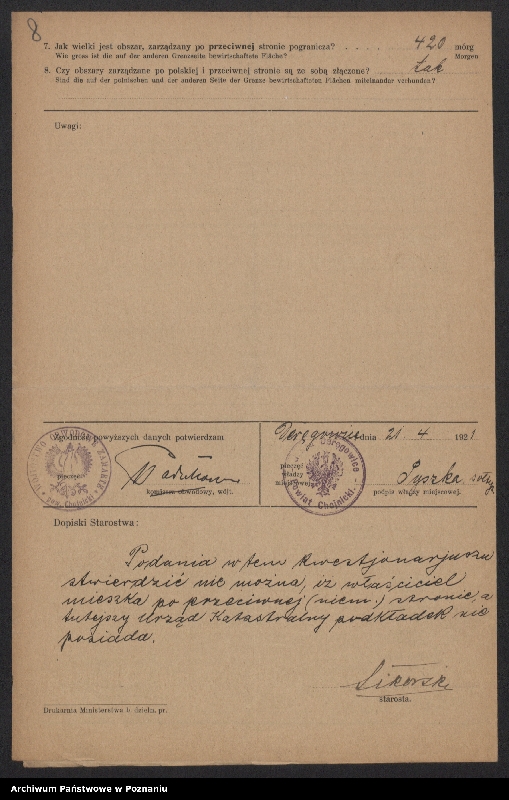 8
7. Jak wielki jest obszar, zarządzany po przeciwnej stronie pogranicza? . . . . 420 mórg
Wie gross ist die auf der anderen Grenzseite bewirtschaftete Fläche? Morgen
8. Czy obszary zarządzane po polskiej i przeciwnej stronie są ze sobą złączone? tak
Sind die auf der polnischen und der anderen Seite der Grenze bewirtschafteten Flächen miteinander verbunden?
Uwagi:
Zgodność powyższych danych potwierdzam
komisarz obwodowy, wójt.
dnia 21 4 1921
pieczęć
władzy
miejscowej
Pyszka sołtys
podpis władzy miejscowej.
Dopiski Starostwa:
Podania w tem kwestjonarjuszu
stwierdzić nie można, iż właściciel
mieszka po przeciwnej (niem.) stronie, a
tutejszy Urząd Katastralny podkładek nie
posiada.
Sikorski
starosta.
Drukarnia Ministerstwa b. dzieln. pr.
Archiwum Państwowe w Poznaniu